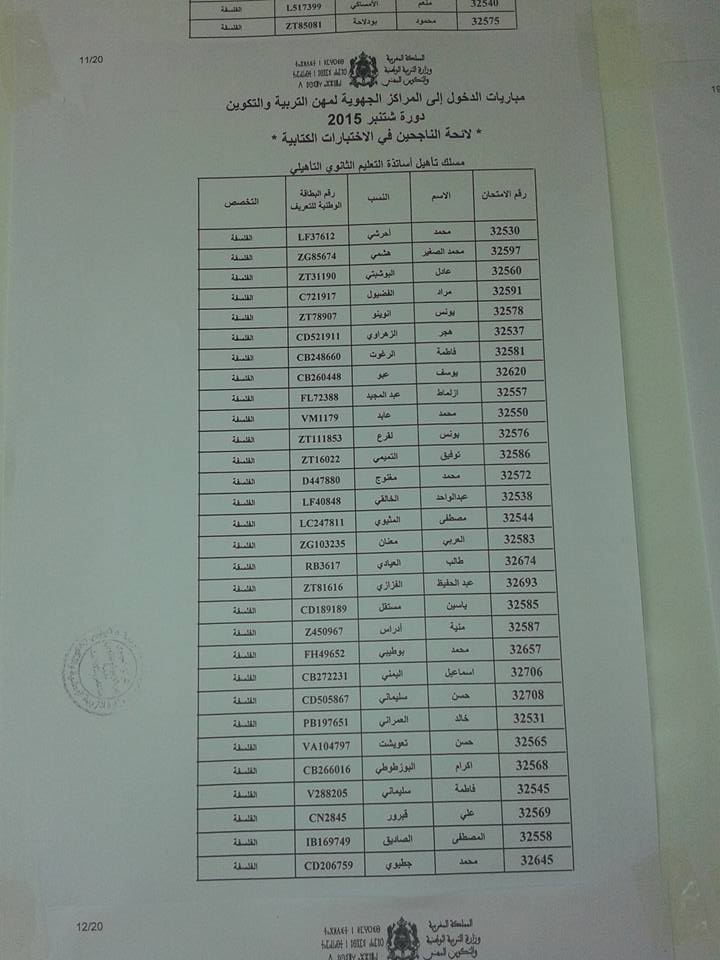 32540 منعم الأمساكي L517399 الفلسفة
32575 محمود بودلاحة ZT85081 الفلسفة
11/20
المملكة المغربية
وزارة التربية الوطنية
والتكوين المهني
مباريات الدخول إلى المراكز الجهوية لمهن التربية والتكوين
دورة شتنبر 2015
* لائحة الناجحين في الاختبارات الكتابية *
مسلك تأهيل أساتذة التعليم الثانوي التأهيلي
رقم الامتحان الاسم النسب رقم البطاقة الوطنية للتعريف التخصص
32530 محمد أحرشي LF37612 الفلسفة
32597 محمد الصغير هشمي ZG85674 الفلسفة
32560 عادل البوشبتي ZT31190 الفلسفة
32591 مراد الفضيول C721917 الفلسفة
32578 يونس انوينو ZT78907 الفلسفة
32537 هجر الزهراوي CD521911 الفلسفة
32581 فاطمة الرغوت CB248660 الفلسفة
32620 يوسف عبو CB260448 الفلسفة
32557 ازلماط عبد المجيد FL72388 الفلسفة
32550 محمد عابد VM1179 الفلسفة
32576 يونس لقرع ZT111853 الفلسفة
32586 توفيق التميمي ZT16022 الفلسفة
32572 محمد مفتوح D447880 الفلسفة
32538 عبدالواحد الخالقي LF40848 الفلسفة
32544 مصطفى المثيوي LC247811 الفلسفة
32583 العربي معنان ZG103235 الفلسفة
32674 طالب العيادي RB3617 الفلسفة
32693 عبد الحفيظ الفزازي ZT81616 الفلسفة
32585 ياسين مستقل CD189189 الفلسفة
32587 منية أدراس Z450967 الفلسفة
32657 محمد بوطيبي FH49652 الفلسفة
32706 اسماعيل اليمني CB272231 الفلسفة
32708 حسن سليماني CD505867 الفلسفة
32531 خالد العمراني PB197651 الفلسفة
32565 حسن تعويشت VA104797 الفلسفة
32568 اكرام البوزطوطي CB266016 الفلسفة
32545 فاطمة سليماني V288205 الفلسفة
32569 علي قيرور CN2845 الفلسفة
32558 المصطفى الصاديق IB169749 الفلسفة
32645 محمد جطيوي CD206759 الفلسفة
12/20
المملكة المغربية
وزارة التربية الوطنية
والتكوين المهني